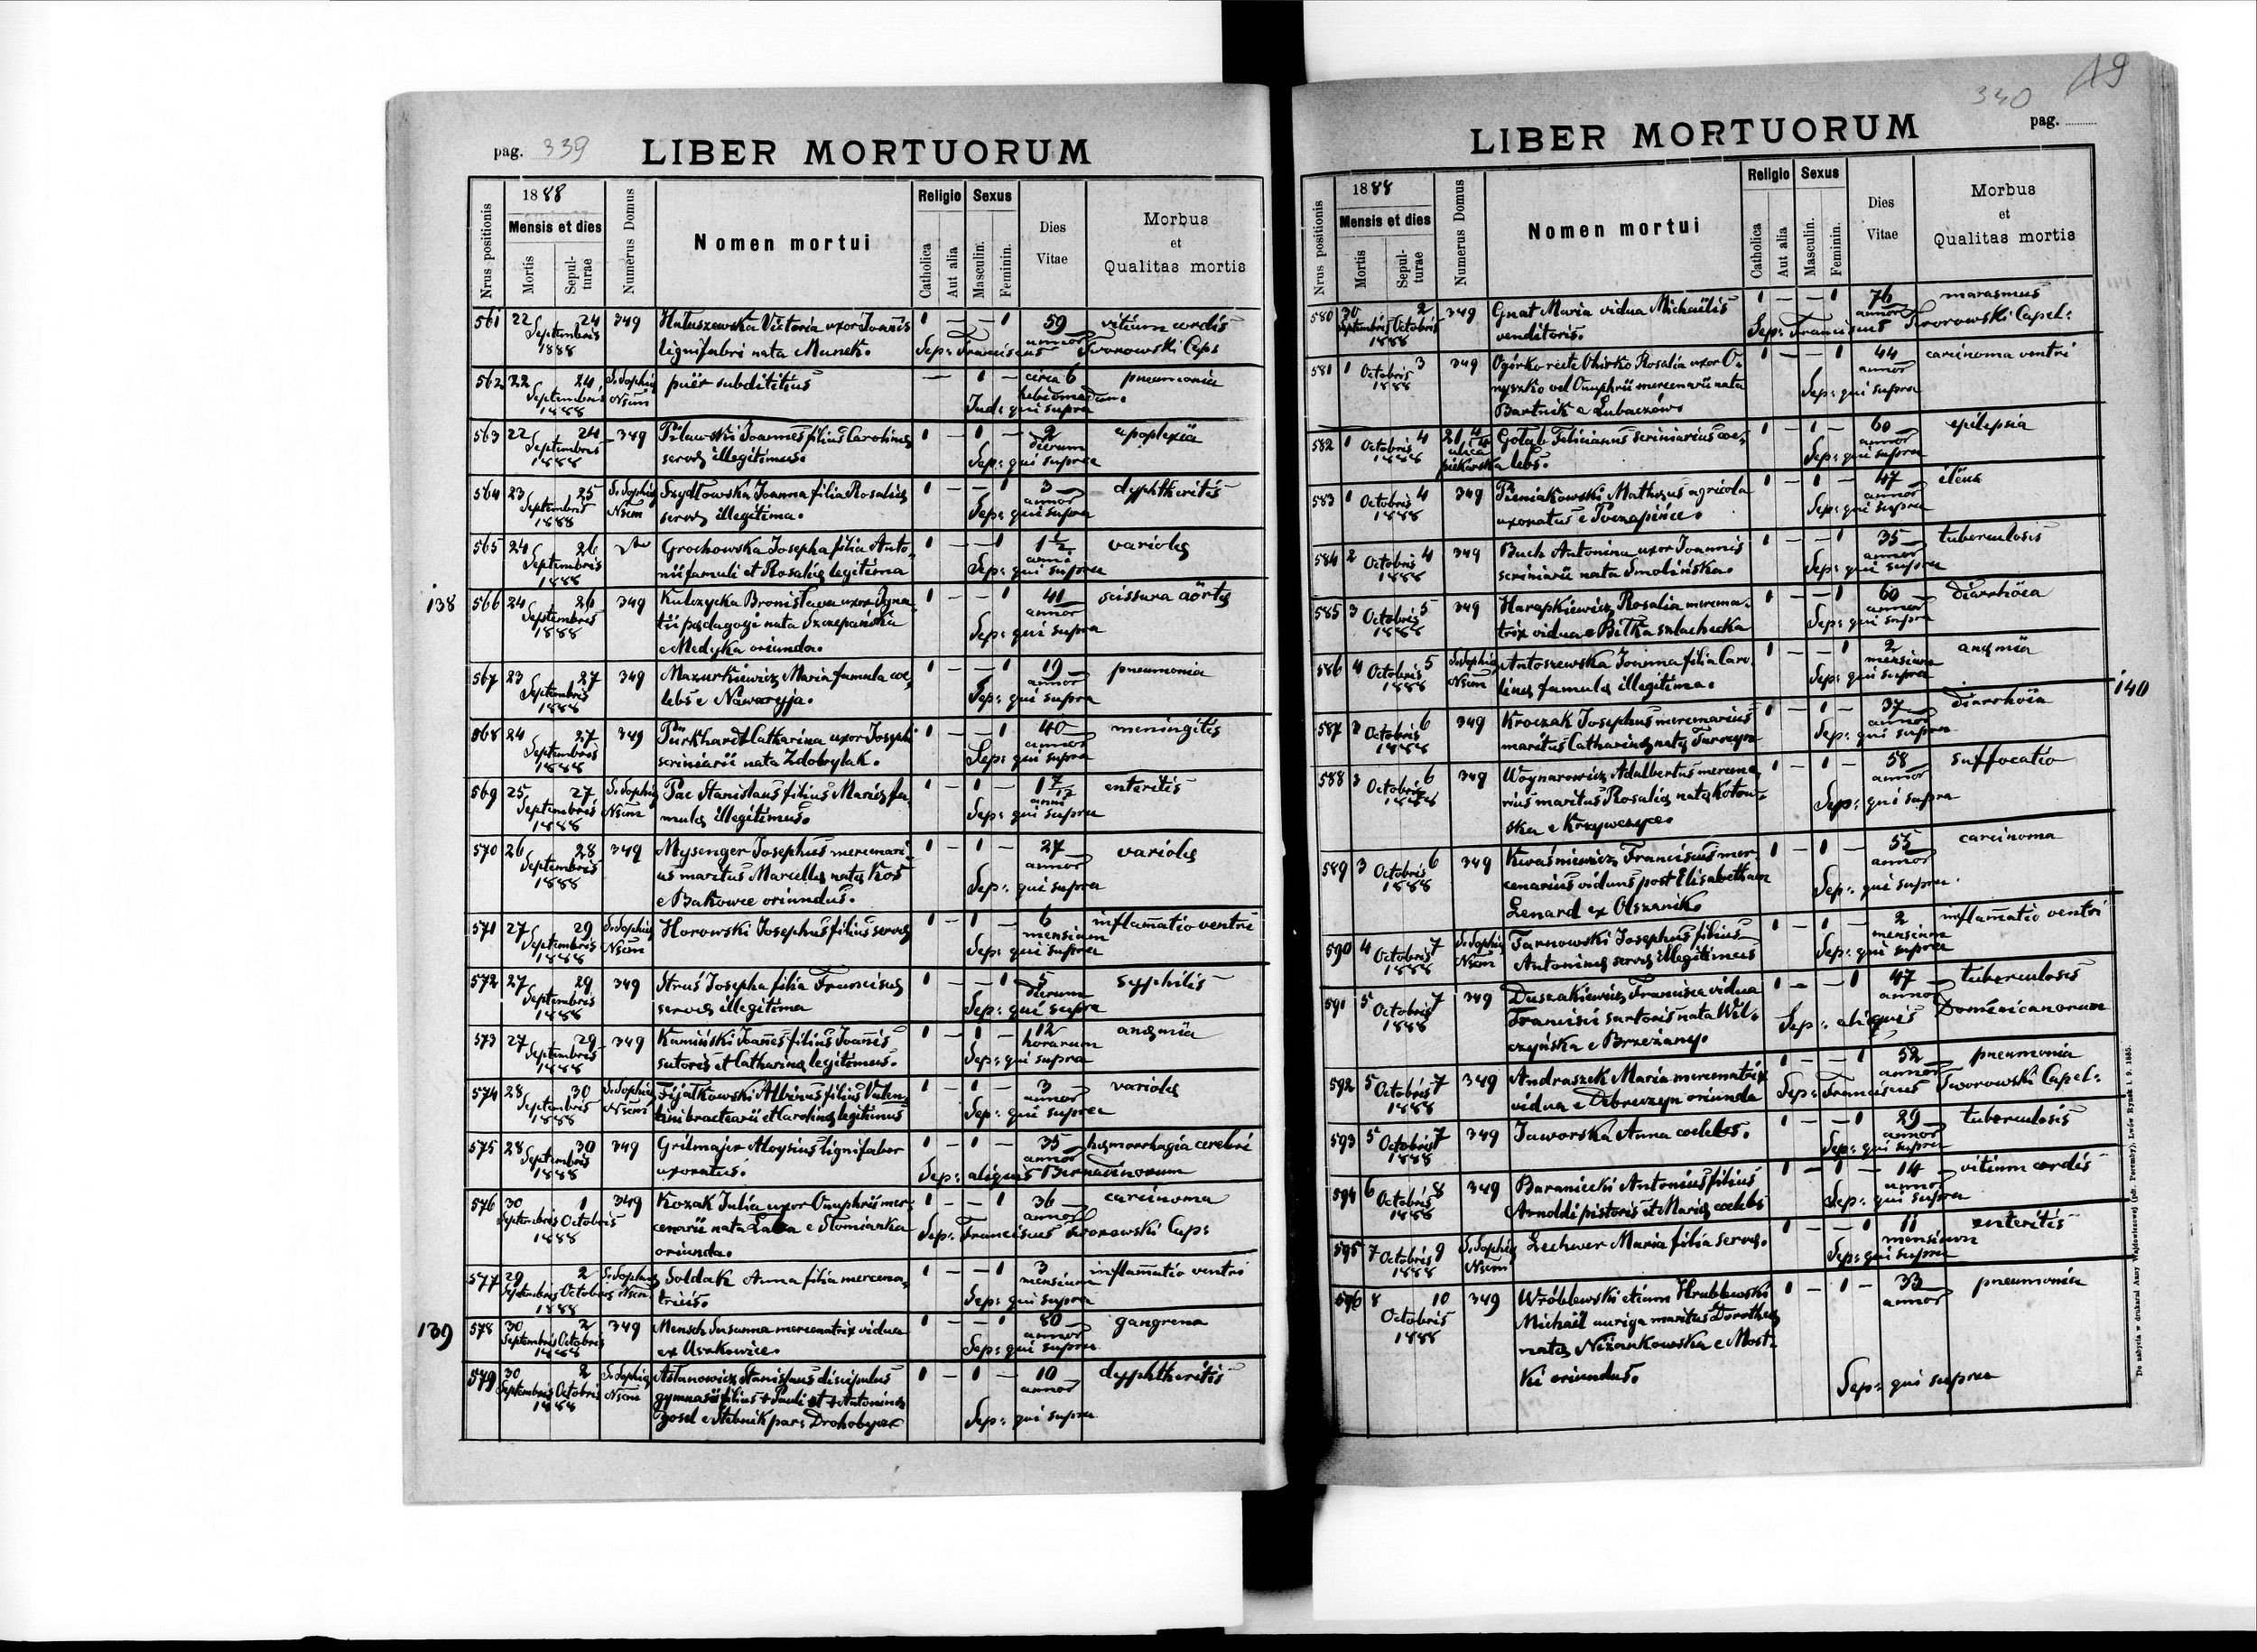 pag. 339 LIBER MORTUORUM
Nrus positionis
1888
Mensis et dies
Mortis
Sepulturae
Numerus Domus
Nomen mortui
Religio
Catholica
Aut alia
Sexus
Masculin.
Feminin.
Dies Vitae
Morbus et Qualitas mortis
561 22 24 349 Hatuszewska Victoria uxor Joannis 1 — — 1 59 vitium cordis
Septembris 1888 lignifabri nata Munek. Sep: Franciscus annor Tworowski Cap:
562 22 24 S. Sophia puër subdititius — 1 — circa 6 pneumonia
Septembris 1888 Nsum Ind: qui supra hebdomadum.
563 22 24 349 Pilawski Joannes filius Carolinæ 1 — 1 — 2 apoplexia
Septembris 1888 servæ illegitimus. dierum Sep: qui supra
564 23 25 S. Sophia Szydłowska Joanna filia Rosaliæ 1 — — 1 3 dyphtheritis
Septembris 1888 Nsum servæ illegitima. annor Sep: qui supra
565 24 26 Grochowska Josepha filia Anto- 1 — — 1 1 1/2 variolæ
Septembris 1888 nii famuli et Rosaliæ legitima anni Sep: qui supra
138 566 24 26 349 Kulczycka Bronisława uxor Igna- 1 — — 1 41 scissura aörtæ
Septembris 1888 tii pædagogi nata Szczepańska annor
e Medyka oriunda. Sep: qui supra
567 23 27 349 Mazurkiewicz Maria famula cœ- 1 — — 1 19 pneumonia
Septembris 1888 lebs e Nawaryja. annor Sep: qui supra
568 24 27 349 Purkhardt Catharina uxor Josephi 1 — — 1 40 meningitis
Septembris 1888 scriniarii nata Zdobylak. annor Sep: qui supra
569 25 27 S. Sophia Pac Stanislaus filius Mariæ fa- 1 — 1 — 1 7/12 enteritis
Septembris 1888 Nsum mulæ illegitimus. anni Sep: qui supra
570 26 28 349 Mysenger Josephus mercenari- 1 — 1 — 27 variolæ
Septembris 1888 us maritus Marcellæ natæ Kos annor
e Bakowce oriundus. Sep: qui supra
571 27 29 S. Sophia Horowski Josephus filius servæ 1 — 1 — 6 inflamatio ventri
Septembris 1888 Nsum mensium Sep: qui supra
572 27 29 349 Struś Josepha filia Franciscæ 1 — — 1 5 syphilis
Septembris 1888 servæ illegitima dierum Sep: qui supra
573 27 29 349 Kamiński Joannes filius Joannis 1 — 1 — 12 anæmia
Septembris 1888 sutoris et Catharinæ legitimus. horarum Sep: qui supra
574 28 30 S. Sophia Fijałkowski Albinus filius Valen- 1 — 1 — 3 variolæ
Septembris 1888 Nsum tini bractearii et Carolinæ legitimus annor Sep: qui supra
575 28 30 349 Grilmajer Aloysius lignifaber 1 — 1 — 35 hæmorrhagia cerebri
Septembris 1888 uxoratus. annor Sep: aliquis Bernadinorum
576 30 1 349 Kozak Julia uxor Onuphrii mer- 1 — — 1 36 carcinoma
Septembris Octobris 1888 cenarii nata Łaba e Słomianka annor
oriunda. Sep: Franciscus Tworowski Cap:
577 29 2 S. Sophia Soldak Anna filia mercena- 1 — — 1 3 inflamatio ventri
Septembris Octobris 1888 Nsum tricis. mensium Sep: qui supra
139 578 30 2 349 Mensch Susanna mercenatrix vidua 1 — — 1 80 gangrena
Septembris Octobris 1888 ex Usakowice. annor Sep: qui supra
579 30 2 S. Sophia Astanowicz Stanislaus discipulus 1 — 1 — 10 dyphtheritis
Septembris Octobris 1888 Nsum gymnasii filius + Pauli et + Antoninæ annor
Josel e Stebnik par: Drohobycz Sep: qui supra
340 19
LIBER MORTUORUM pag.
Nrus positionis
1888
Mensis et dies
Mortis
Sepulturae
Numerus Domus
Nomen mortui
Religio
Catholica
Aut alia
Sexus
Masculin.
Feminin.
Dies Vitae
Morbus et Qualitas mortis
580 30 2 349 Gnat Maria vidua Michaëlis 1 — — 1 76 marasmus
Septembris Octobris 1888 venditoris. annor Sep: Franciscus Tworowski Capel:
581 1 3 349 Ogórko recte Ohirko Rosalia uxor O- 1 — — 1 44 carcinoma ventri
Octobris 1888 nyszko vel Onuphrii mercenarii nata annor
Bartnik e Lubaczów. Sep: qui supra
582 1 4 ulica piekarska Gołąb Felicianus scriniarius cœ- 1 — 1 — 60 epilepsia
Octobris 1888 lebs. annor Sep: qui supra
583 1 4 349 Pieniakowski Mathæus agricola 1 — 1 — 47 ileus
Octobris 1888 uxoratus e Toczapińce. annor Sep: qui supra
584 2 4 349 Buch Antonina uxor Joannis 1 — — 1 35 tuberculosis
Octobris 1888 scriniarii nata Smolińska. annor Sep: qui supra
585 3 5 349 Harapkiewicz Rosalia mercena- 1 — — 1 60 diarrhöea
Octobris 1888 trix vidua e Biłka szlachecka annor Sep: qui supra
586 4 5 S. Sophia Antoszewska Joanna filia Caro- 1 — — 1 2 anæmia
Octobris 1888 Nsum linæ famulæ illegitima. mensium Sep: qui supra
140
587 3 6 349 Kroczak Josephus mercenarius 1 — 1 — 37 diarrhöea
Octobris 1888 maritus Catharinæ natæ annor Sep: qui supra
588 3 6 349 Woynarowicz Adalbertus mercena- 1 — 1 — 58 suffocatio
Octobris 1888 rius maritus Rosaliæ natæ Kotow- annor
ska e Krzywczyce. Sep: qui supra
589 3 6 349 Kwaśniewicz Franciscus mer- 1 — 1 — 55 carcinoma
Octobris 1888 cenarius viduus post Elisabetham annor
Lenard ex Olszanik. Sep: qui supra
590 4 7 S. Sophia Tarnowski Josephus filius 1 — 1 — 2 inflamatio ventri
Octobris 1888 Nsum Antoninæ servæ illegitimus mensium Sep: qui supra
591 5 7 349 Duszakiewicz Francisca vidua 1 — — 1 47 tuberculosis
Octobris 1888 Francisci sartoris nata Wil- annor
czyńska e Brzeżany. Sep: aliquis Dominicanorum
592 5 7 349 Andraszek Maria mercenatrix 1 — — 1 52 pneumonia
Octobris 1888 vidua e Debreczyn oriunda annor Sep: Franciscus Tworowski Capel:
593 5 7 349 Jaworska Anna cœlebs. 1 — — 1 29 tuberculosis
Octobris 1888 annor Sep: qui supra
594 6 8 349 Baraniecki Antonius filius 1 — 1 — 14 vitium cordis
Octobris 1888 Arnoldi pistoris et Mariæ cœlebs annor Sep: qui supra
595 7 9 S. Sophia Lechwer Maria filia servæ. 1 — — 1 11 enteritis
Octobris 1888 Nsum mensium Sep: qui supra
596 8 10 349 Wróblewski etiam Hrublewski 1 — 1 — 33 pneumonia
Octobris 1888 Michaël auriga maritus Dorotheæ annor
natæ Niżankowska e Most-
ki oriundus. Sep: qui supra
Do nabycia w drukarni Anny Wajdowiczowej (pdt. Poremby), Lwów Rynek l. 9. 1885.